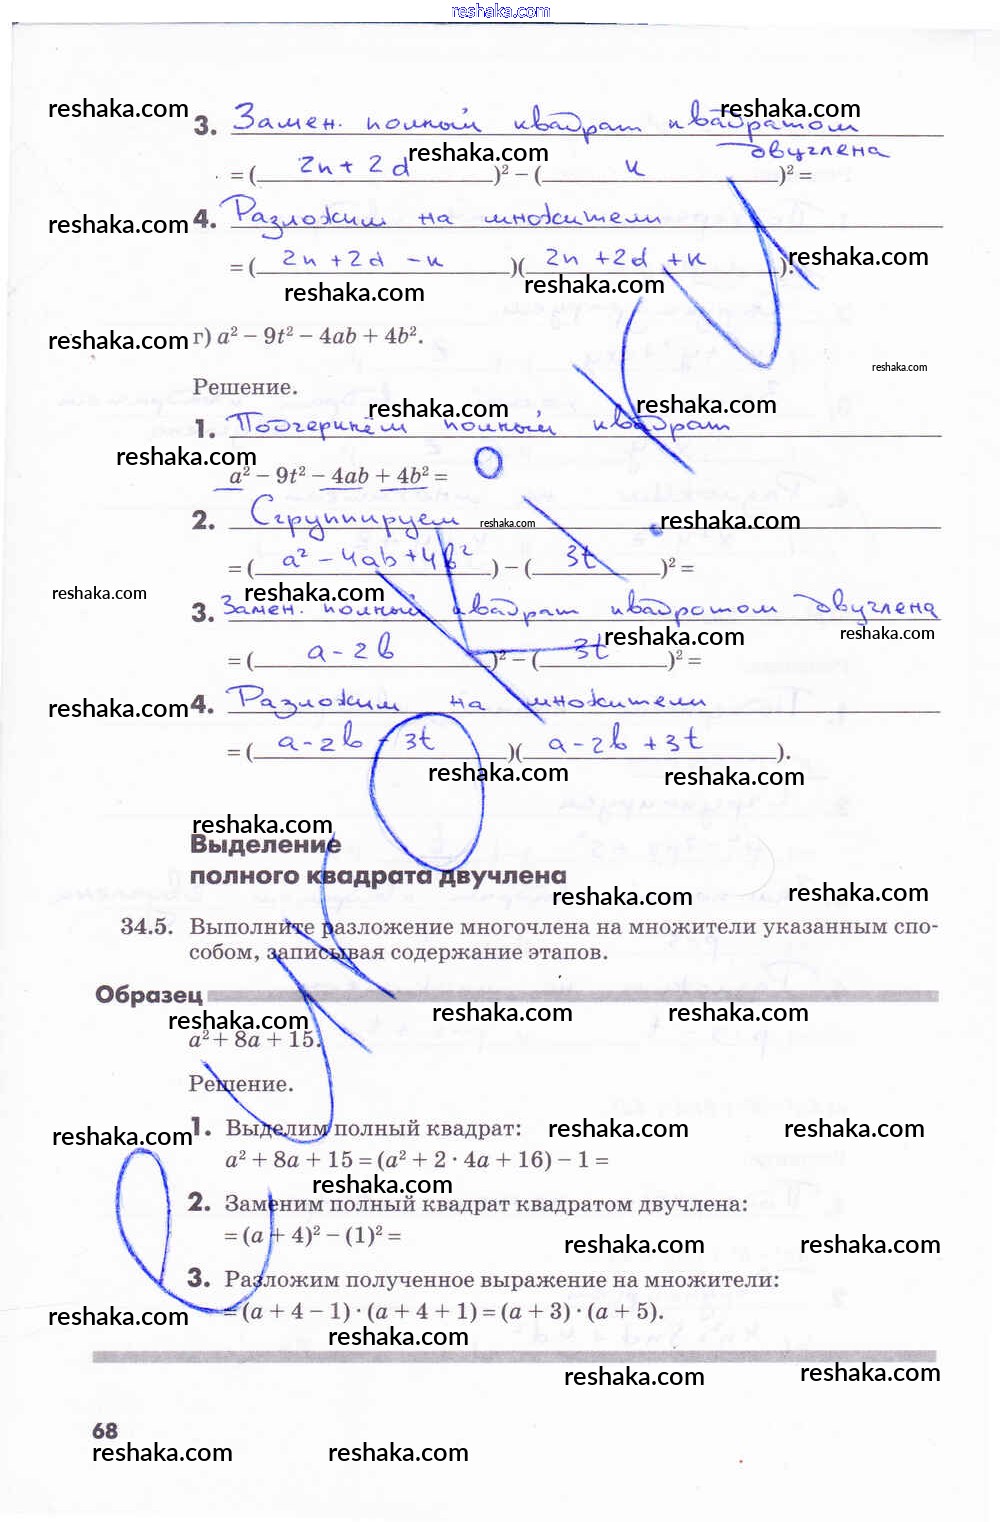 reshaka.com
reshaka.com reshaka.com
3. Замен. полный квадрат квадратом
двучлена
reshaka.com
= ( 2n + 2d )² − ( к )² =
reshaka.com
4. Разложим на множители
= ( 2n + 2d − к )( 2n + 2d + к ).
reshaka.com
reshaka.com reshaka.com
reshaka.com
г) a² − 9t² − 4ab + 4b².
reshaka.com
Решение.
reshaka.com reshaka.com
1. Подчеркнём полный квадрат
reshaka.com
a² − 9t² − 4ab + 4b² =
2. Сгруппируем
reshaka.com reshaka.com
= ( a² − 4ab + 4b² ) − ( 3t )² =
reshaka.com reshaka.com
3. Замен. полный квадрат квадратом двучлена
reshaka.com reshaka.com
= ( a − 2b )² − ( 3t )² =
4. Разложим на множители
reshaka.com
= ( a − 2b − 3t )( a − 2b + 3t ).
reshaka.com reshaka.com
reshaka.com
Выделение
полного квадрата двучлена
reshaka.com reshaka.com
34.5. Выполните разложение многочлена на множители указанным спо-
собом, записывая содержание этапов.
Образец
reshaka.com reshaka.com reshaka.com
a² + 8a + 15.
Решение.
1. Выделим полный квадрат:
reshaka.com reshaka.com reshaka.com
a² + 8a + 15 = (a² + 2 · 4a + 16) − 1 =
reshaka.com
2. Заменим полный квадрат квадратом двучлена:
= (a + 4)² − (1)² =
reshaka.com reshaka.com
3. Разложим полученное выражение на множители:
= (a + 4 − 1) · (a + 4 + 1) = (a + 3) · (a + 5).
reshaka.com
reshaka.com
reshaka.com reshaka.com
68
reshaka.com reshaka.com